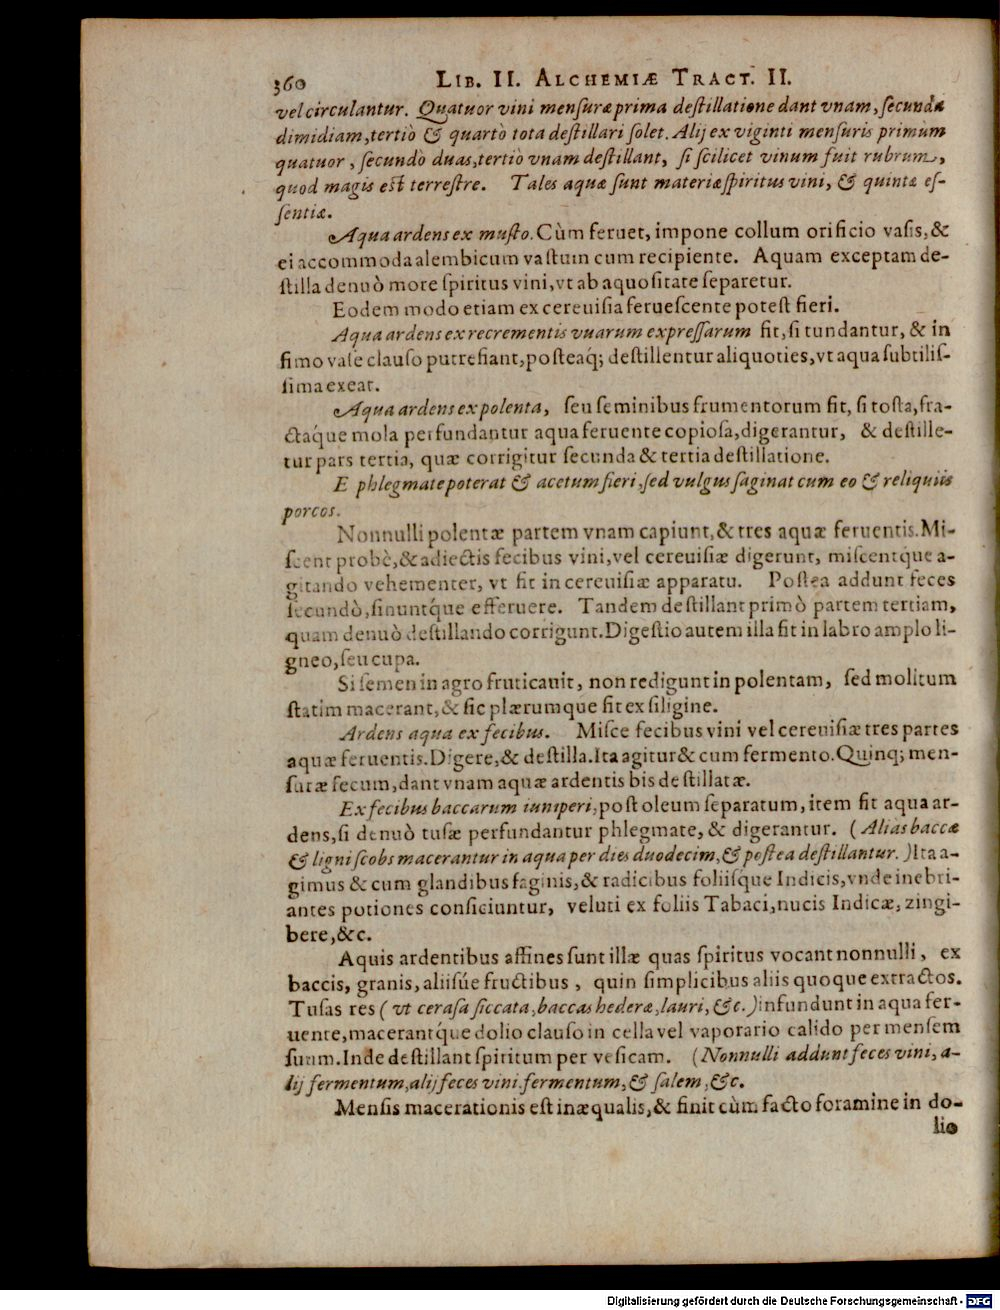 360 LIB. II. ALCHEMIÆ TRACT. II.
vel circulantur. Quatuor vini mensuræ prima destillatione dant vnam, secunda
dimidiam, tertiò & quartò tota destillari solet. Alij ex viginti mensuris primùm
quatuor, secundò duas, tertiò vnam destillant, si scilicet vinum fuit rubrum,
quod magis est terrestre. Tales aquæ sunt materiæ spiritus vini, & quintæ es-
sentiæ.
Aqua ardens ex musto. Cùm feruet, impone collum orificio vasis, &
ei accommoda alembicum vastum cum recipiente. Aquam exceptam de-
stilla denuò more spiritus vini, vt ab aquositate separetur.
Eodem modo etiam ex cereuisia feruescente potest fieri.
Aqua ardens ex recrementis vuarum expressarum fit, si tundantur, & in
fimo vase clauso putrefiant, posteaq; destillentur aliquoties, vt aqua subtilis-
sima exeat.
Aqua ardens ex polenta, seu seminibus frumentorum fit, si tosta, fra-
ctaq́ue mola perfundantur aqua feruente copiosa, digerantur, & destille-
tur pars tertia, quæ corrigitur secunda & tertia destillatione.
E phlegmate poterat & acetum fieri, sed vulgus saginat cum eo & reliquiis
porcos.
Nonnulli polentæ partem vnam capiunt, & tres aquæ feruentis. Mi-
scent probè, & adiectis fecibus vini, vel cereuisiæ digerunt, miscentq́ue a-
gitando vehementer, vt fit in cereuisiæ apparatu. Postea addunt feces
secundò, sinuntq́ue efferuere. Tandem destillant primò partem tertiam,
quam denuò destillando corrigunt. Digestio autem illa fit in labro amplo li-
gneo, seu cupa.
Si semen in agro fruticauit, non redigunt in polentam, sed molitum
statim macerant, & sic plærumque fit ex siligine.
Ardens aqua ex fecibus. Misce fecibus vini vel cereuisiæ tres partes
aquæ feruentis. Digere, & destilla. Ita agitur & cum fermento. Quinq; men-
suræ fecum, dant vnam aquæ ardentis bis destillatæ.
Ex fecibus baccarum iuniperi, post oleum separatum, item fit aqua ar-
dens, si denuò tusæ perfundantur phlegmate, & digerantur. (Alias baccæ
& ligni scobs macerantur in aqua per dies duodecim, & postea destillantur.) Ita a-
gimus & cum glandibus faginis, & radicibus foliisque Indicis, vnde inebri-
antes potiones conficiuntur, veluti ex foliis Tabaci, nucis Indicæ, zingi-
bere, &c.
Aquis ardentibus affines sunt illæ quas spiritus vocant nonnulli, ex
baccis, granis, aliisúe fructibus, quin simplicibus aliis quoque extractos.
Tusas res (vt cerasa siccata, baccas hederæ, lauri, &c.) infundunt in aqua fer-
uente, macerantq́ue dolio clauso in cella vel vaporario calido per mensem
suum. Inde destillant spiritum per vesicam. (Nonnulli addunt feces vini, a-
lij fermentum, alij feces vini fermentum, & salem, &c.
Mensis macerationis est inæqualis, & finit cùm facto foramine in do-
lio
Digitalisierung gefördert durch die Deutsche Forschungsgemeinschaft - DFG